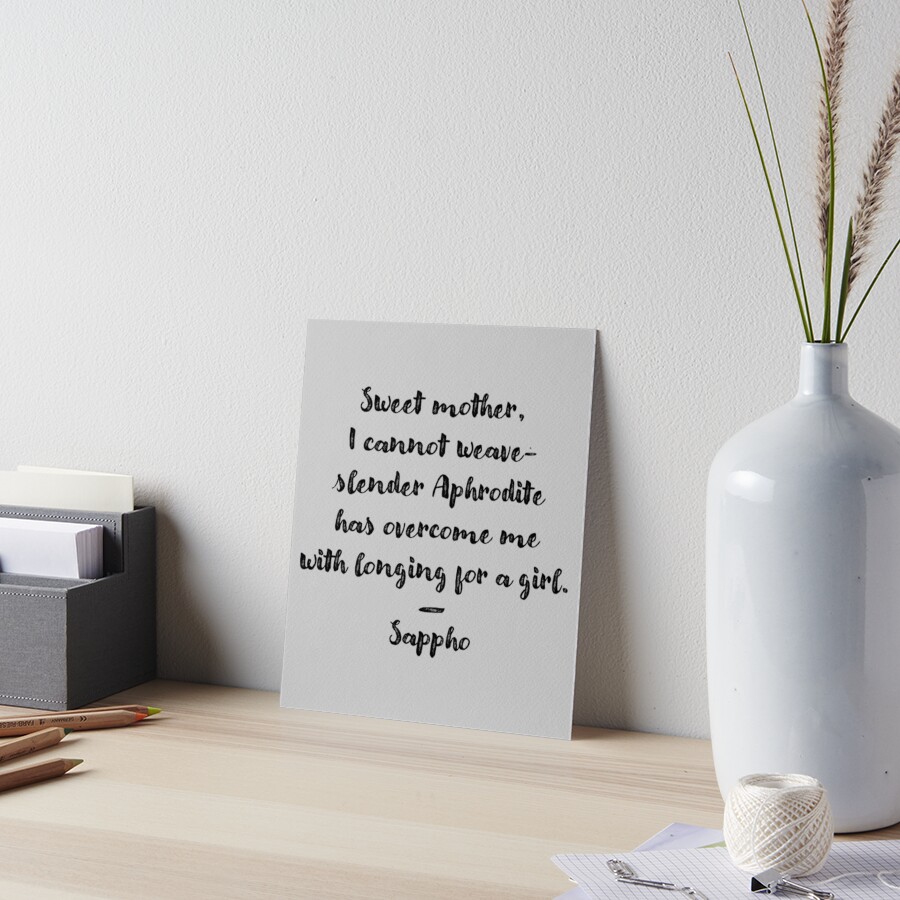 Sweet mother,
I cannot weave-
slender Aphrodite
has overcome me
with longing for a girl.
-
Sappho